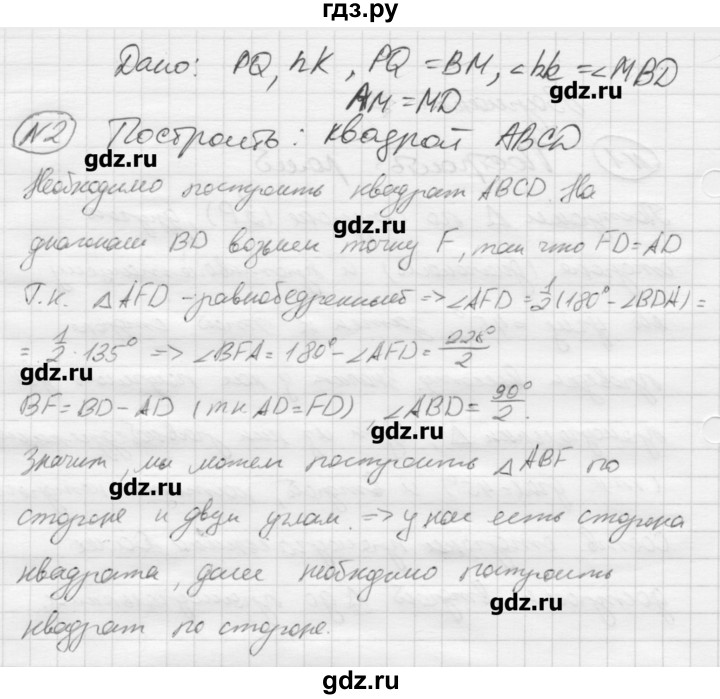 гдз.ру
Дано: PQ, hK, PQ = BM, ∠hk = ∠MBD
gdz.ru
AM = MD
№2 Построить: квадрат ABCD
gdz.ru
Необходимо построить квадрат ABCD. На
gdz.ru
диагонали BD возьмем точку F, так что FD=AD
Т.к. △AFD – равнобедренный => ∠AFD = 1/2(180° - ∠BDA) =
= 1/2 · 135° => ∠BFA = 180° - ∠AFD = 226°/2
gdz.ru
BF = BD - AD (т.к AD = FD), ∠ABD = 90°/2.
gdz.ru
Значит, мы можем построить △ABF по
gdz.ru
стороне и двум углам. => у нас есть сторона
квадрата, далее необходимо построить
gdz.ru
квадрат по стороне.
гдз.ру